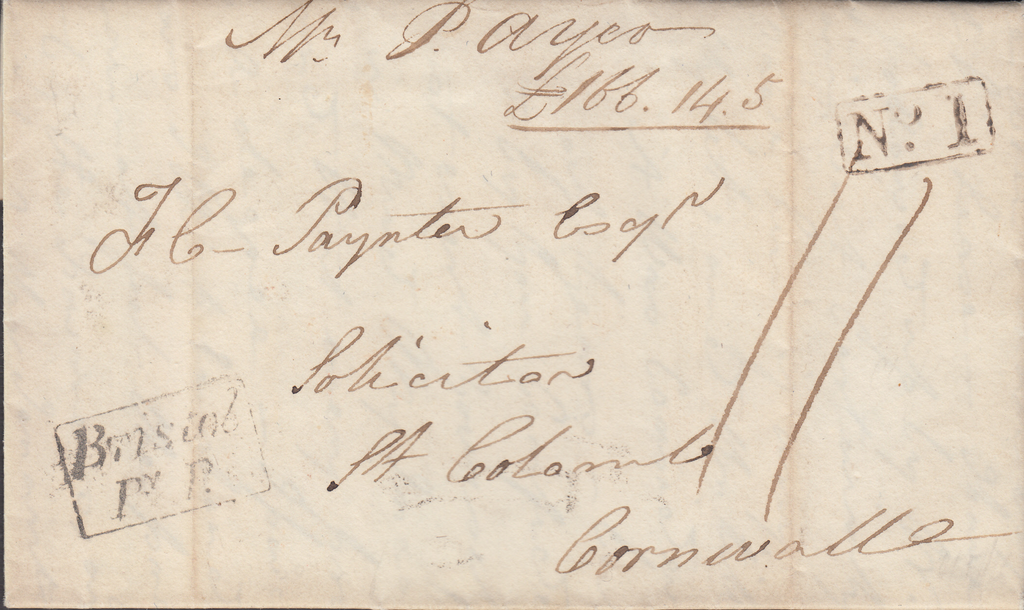 Mr P. Ayco
£166. 14. 5
No. 1
F C - Paynter Esqr
11
Solicitor
St Colomb
Cornwall
Bristol
Py P.